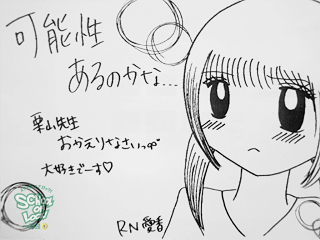 可能性
あるのかな...
栗山先生
おかえりなさいっ
大好きでーす♡
RN 愛香
SCHOOL
OF
LOCK!